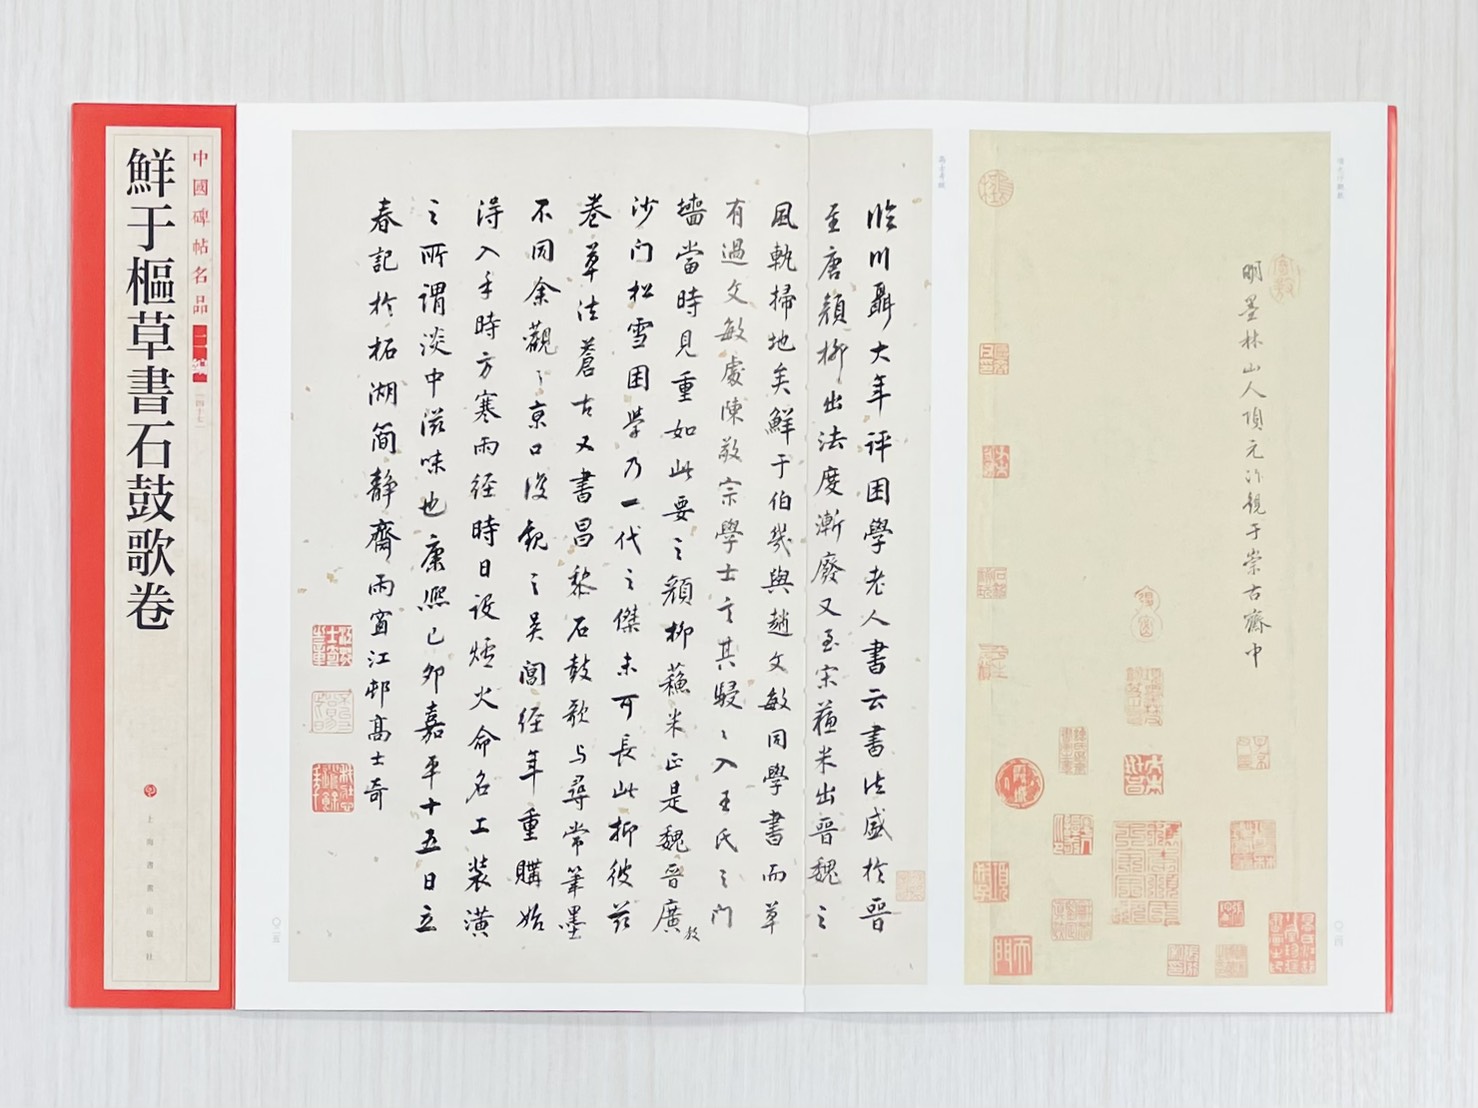 中國碑帖名品
鮮于樞草書石鼓歌卷
上海書畫出版社
明墨林山人項元汴親于崇古齋中
臨川聶大年評困學老人書云書法盛於晉
至唐顏柳出法度漸廢又至宋蘓米出晉魏之
風軌掃地矣鮮于伯幾與趙文敏同學書而草
有過文敏處陳敬宗學士言其駸〻入王氏之門
墻當時見重如此要之顏柳蘓米正是魏晉廣
沙門松雪困學乃一代之傑未可長此抑彼茲
卷草法蒼古又書昌黎石鼓歌与尋常筆墨
不同余觀之京口後觀之吳閶經年重購始
淂入手時方寒雨經時日設爐火命名工裝潢
之所謂淡中滋味也康熙己卯嘉平十五日立
春記於柘湖簡靜齋雨窗江邨高士奇